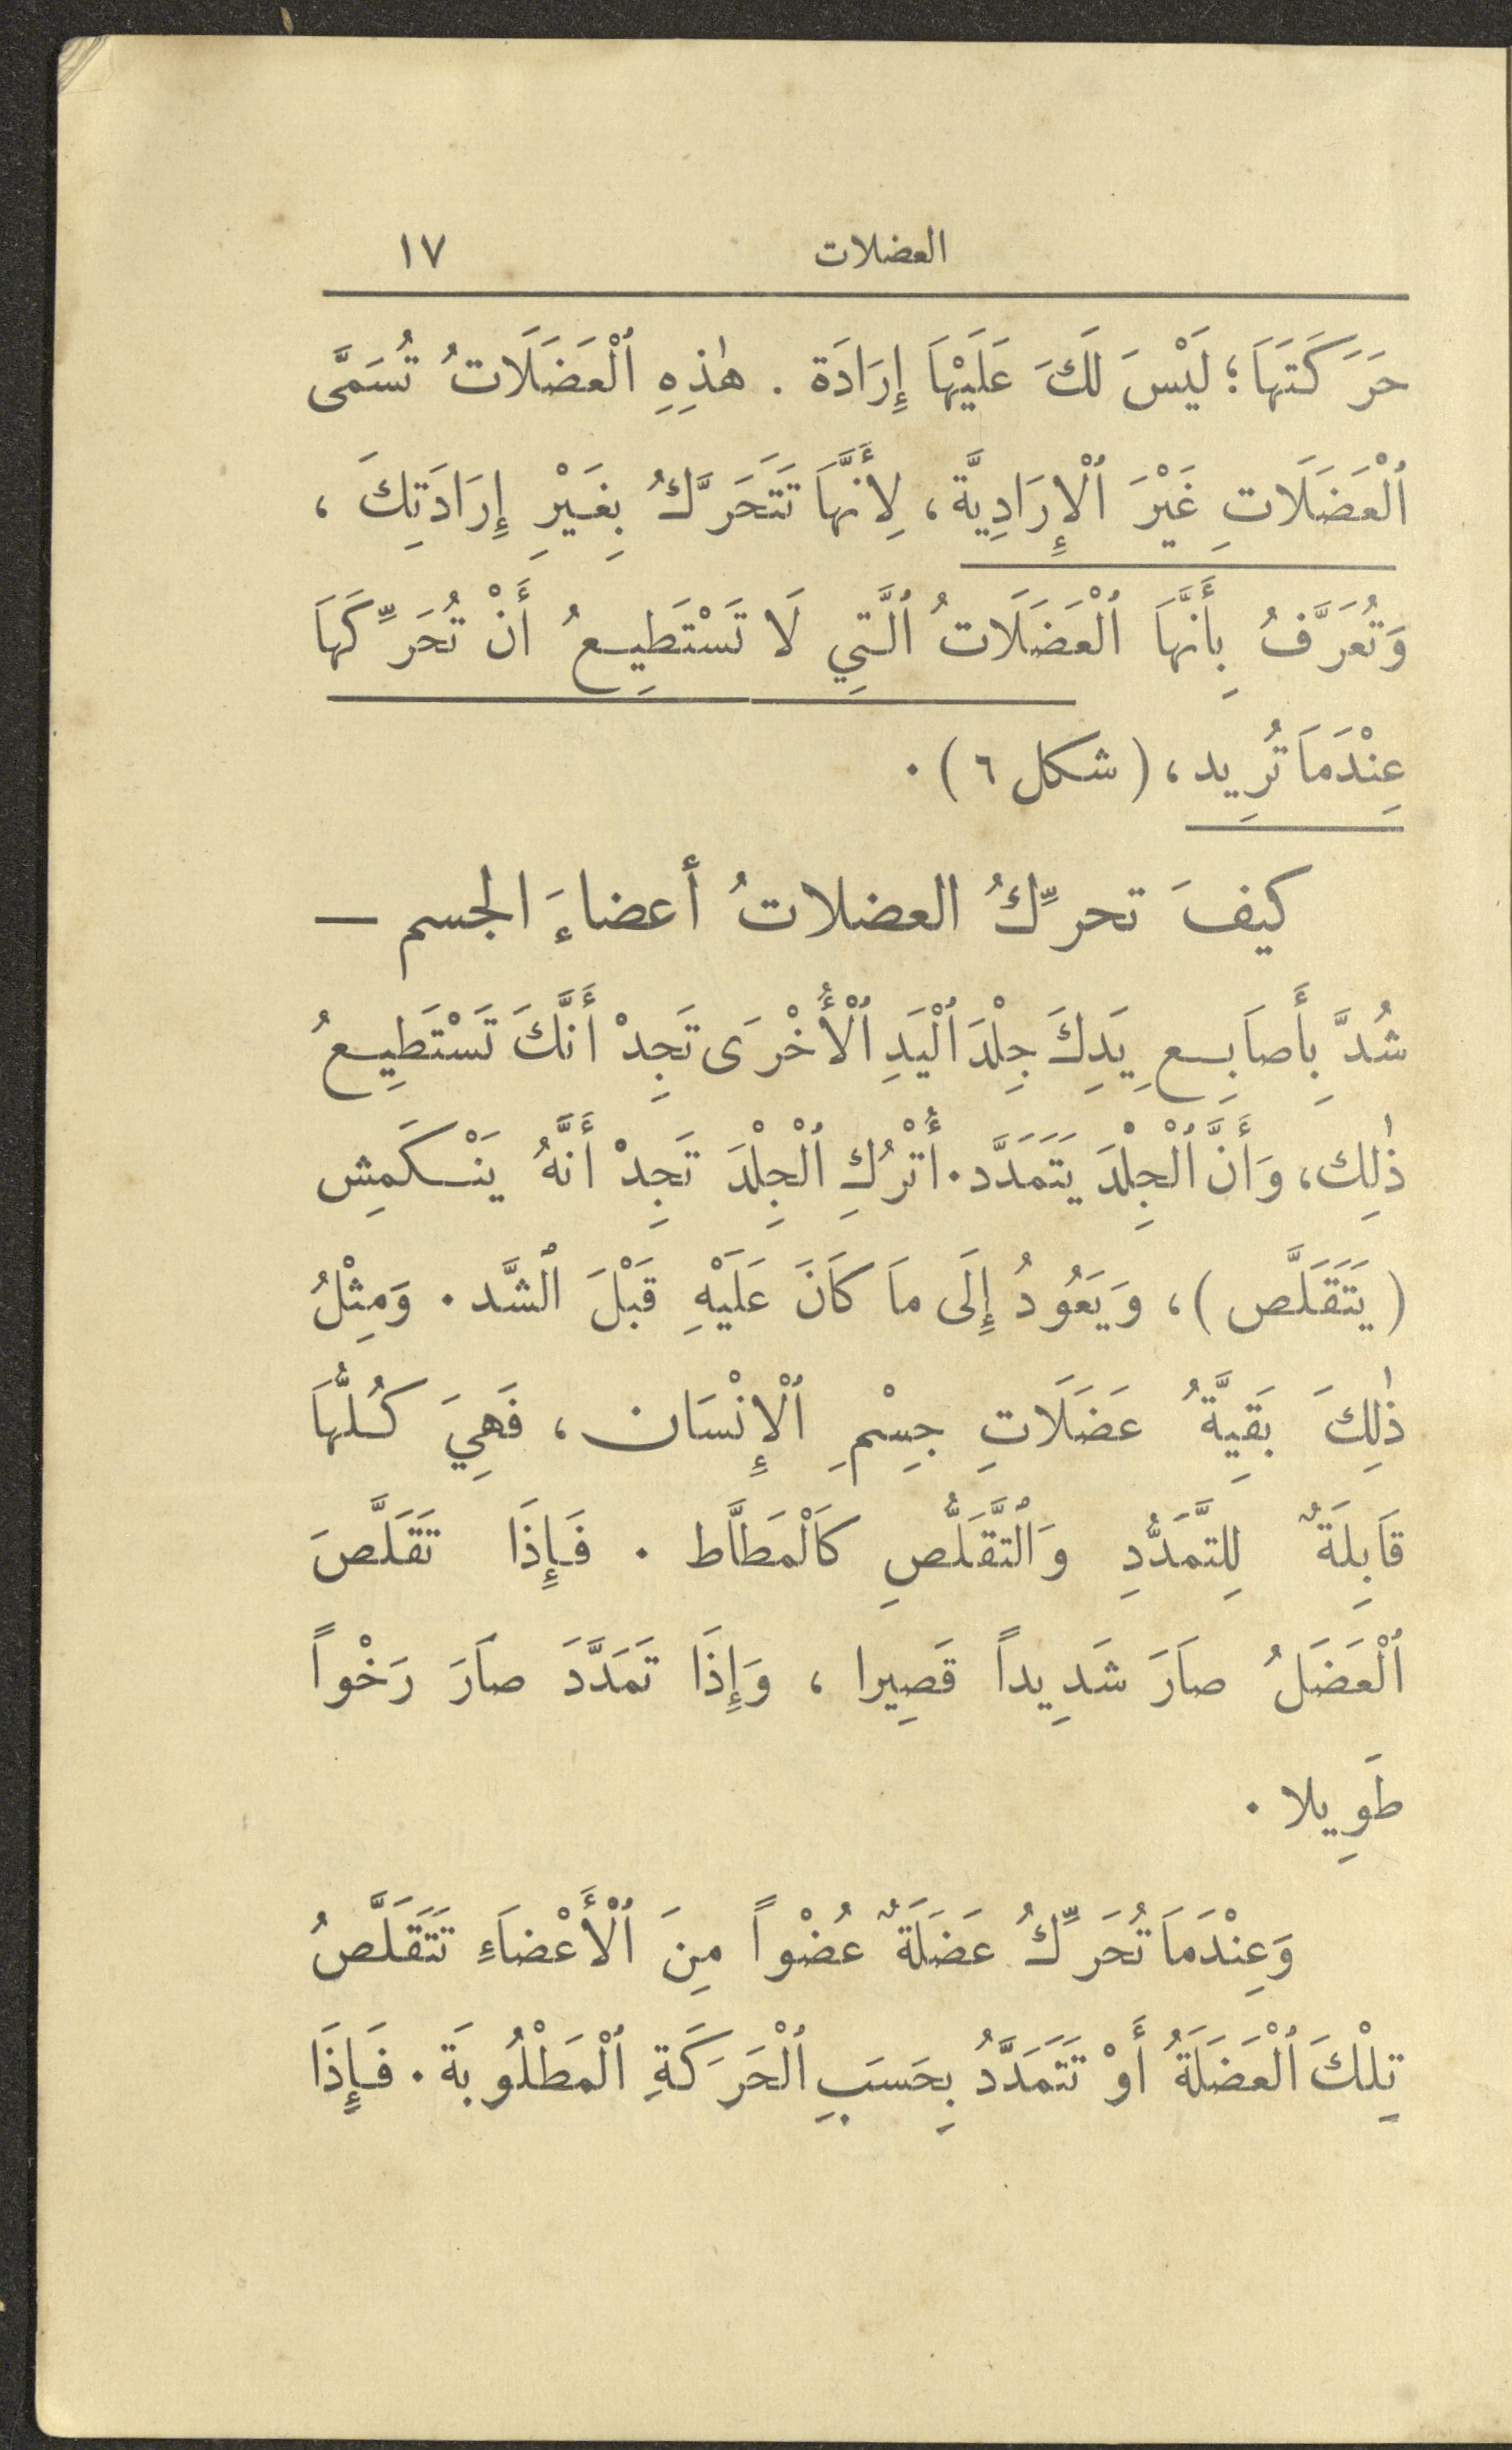 العضلات ١٧
حَرَكَتَهَا؛ لَيْسَ لَكَ عَلَيْهَا إِرَادَة . هٰذِهِ ٱلْعَضَلَاتُ تُسَمَّى
ٱلْعَضَلَاتِ غَيْرَ ٱلْإِرَادِيَّة، لِأَنَّهَا تَتَحَرَّكُ بِغَيْرِ إِرَادَتِكَ ،
وَتُعَرَّفُ بِأَنَّهَا ٱلْعَضَلَاتُ ٱلَّتِي لَا تَسْتَطِيعُ أَنْ تُحَرِّكَهَا
عِنْدَمَا تُرِيد، (شكل ٦) .
كيفَ تحرِّكُ العضلاتُ أعضاءَ الجسم —
شُدَّ بِأَصَابِعِ يَدِكَ جِلْدَ ٱلْيَدِ ٱلْأُخْرَى تَجِدْ أَنَّكَ تَسْتَطِيعُ
ذٰلِك، وَأَنَّ ٱلْجِلْدَ يَتَمَدَّد. أُتْرُكِ ٱلْجِلْدَ تَجِدْ أَنَّهُ يَنْكَمِش
(يَتَقَلَّص)، وَيَعُودُ إِلَى مَا كَانَ عَلَيْهِ قَبْلَ ٱلشَّد. وَمِثْلُ
ذٰلِكَ بَقِيَّةُ عَضَلَاتِ جِسْمِ ٱلْإِنْسَان، فَهِيَ كُلُّهَا
قَابِلَةٌ لِلتَّمَدُّدِ وَٱلتَّقَلُّصِ كَٱلْمَطَّاط . فَإِذَا تَقَلَّصَ
ٱلْعَضَلُ صَارَ شَدِيداً قَصِيرا ، وَإِذَا تَمَدَّدَ صَارَ رَخْواً
طَوِيلا .
وَعِنْدَمَا تُحَرِّكُ عَضَلَةٌ عُضْواً مِنَ ٱلْأَعْضَاءِ تَتَقَلَّصُ
تِلْكَ ٱلْعَضَلَةُ أَوْ تَتَمَدَّدُ بِحَسَبِ ٱلْحَرَكَةِ ٱلْمَطْلُوبَة. فَإِذَا